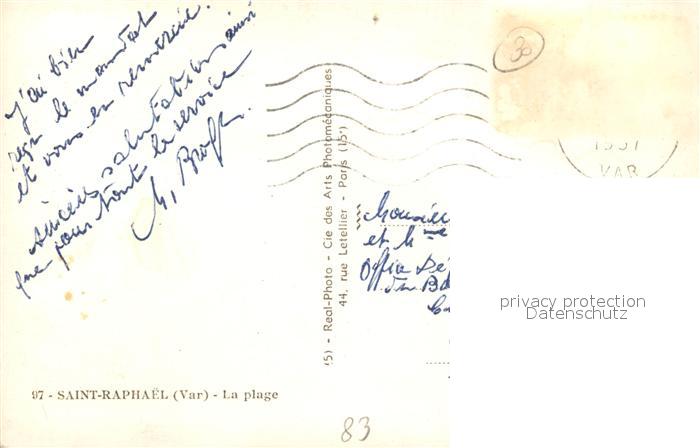 J'ai bien
reçu le mandat
et vous en remercie.
Sincères salutations ainsi
que pour toute le service
M.
30
1951
VAR
(5) - Real-Photo - Cie des Arts Photomécaniques
44, rue Letellier - Paris (15ᵉ)
Monsieu
et Mme
Office Dé
du Bd
privacy protection
Datenschutz
97 - SAINT-RAPHAËL (Var) - La plage
83